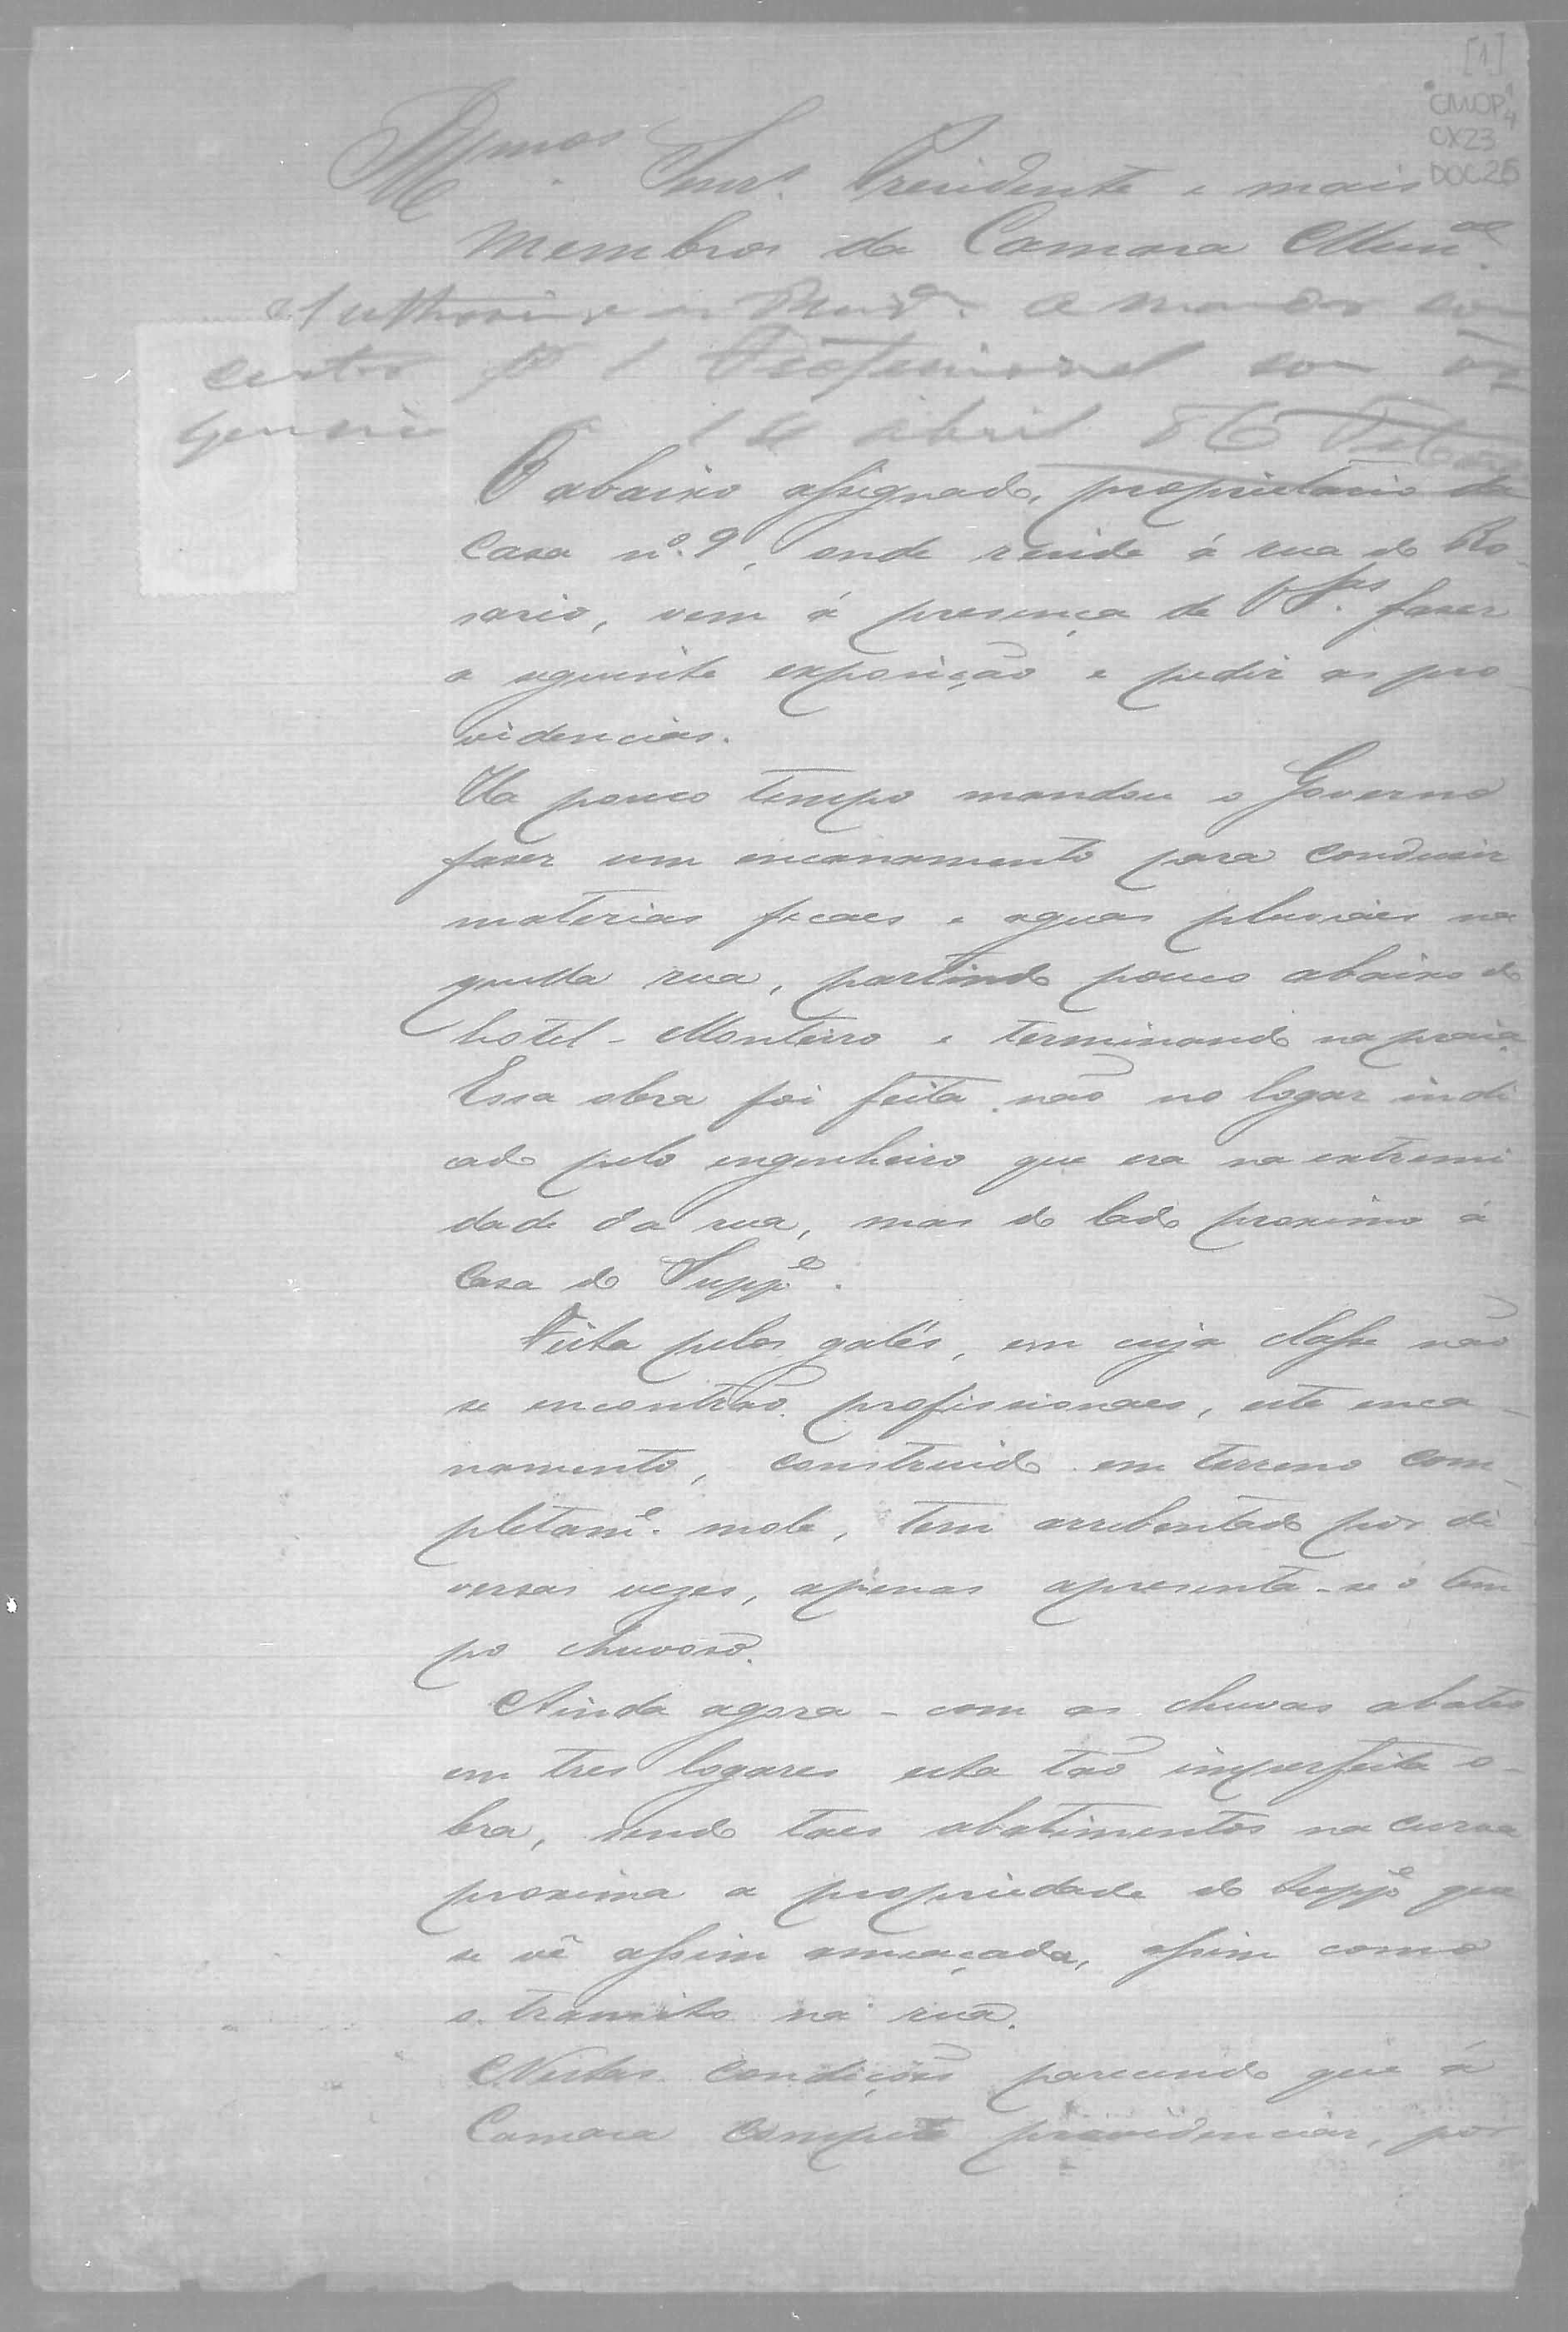 [1]
CMOP
CX23
DOC25
Illmos Senrs. Presidente e mais
membros da Camara Munal.
a mandar con
certar pr 1 Profissional com ur
gencia
14 abril 86
O abaixo assignado, proprietario da
casa nº. 9, onde reside á rua do Ro-
sario, vem á presença de VSas. faser
a seguinte exposição e pedir as pro-
videncias.
Ha pouco tempo mandou o Governo
faser um encanamento para condusir
materias fecaes e aguas pluviaes na
quella rua, partindo pouco abaixo do
hotel - Monteiro e terminando na praia.
Essa obra foi feita não no logar indi
cado pelo engenheiro que era na extremi
dade da rua, mas do lado proximo á
casa do Suppe.
Feita pelos galés, em cuja classe não
se encontrão profissionaes, este enca-
namento, construido em terreno com-
pletame. mole, tem arrebentado por di
versas vezes, apenas apresenta-se o tem
po chuvoso.
Ainda agora - com as chuvas abateo
em tres logares esta tão imperfeita o-
bra, sendo taes abatimentos na curva
proxima a propriedade do suppe que
se vê assim ameaçada, assim como
o transito na rua.
Nestas condições parecendo que á
Camara compete providenciar, por